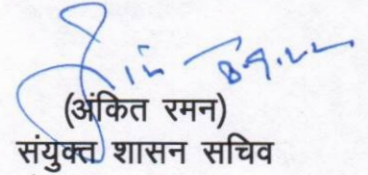 (अंकित रमन)
संयुक्त शासन सचिव